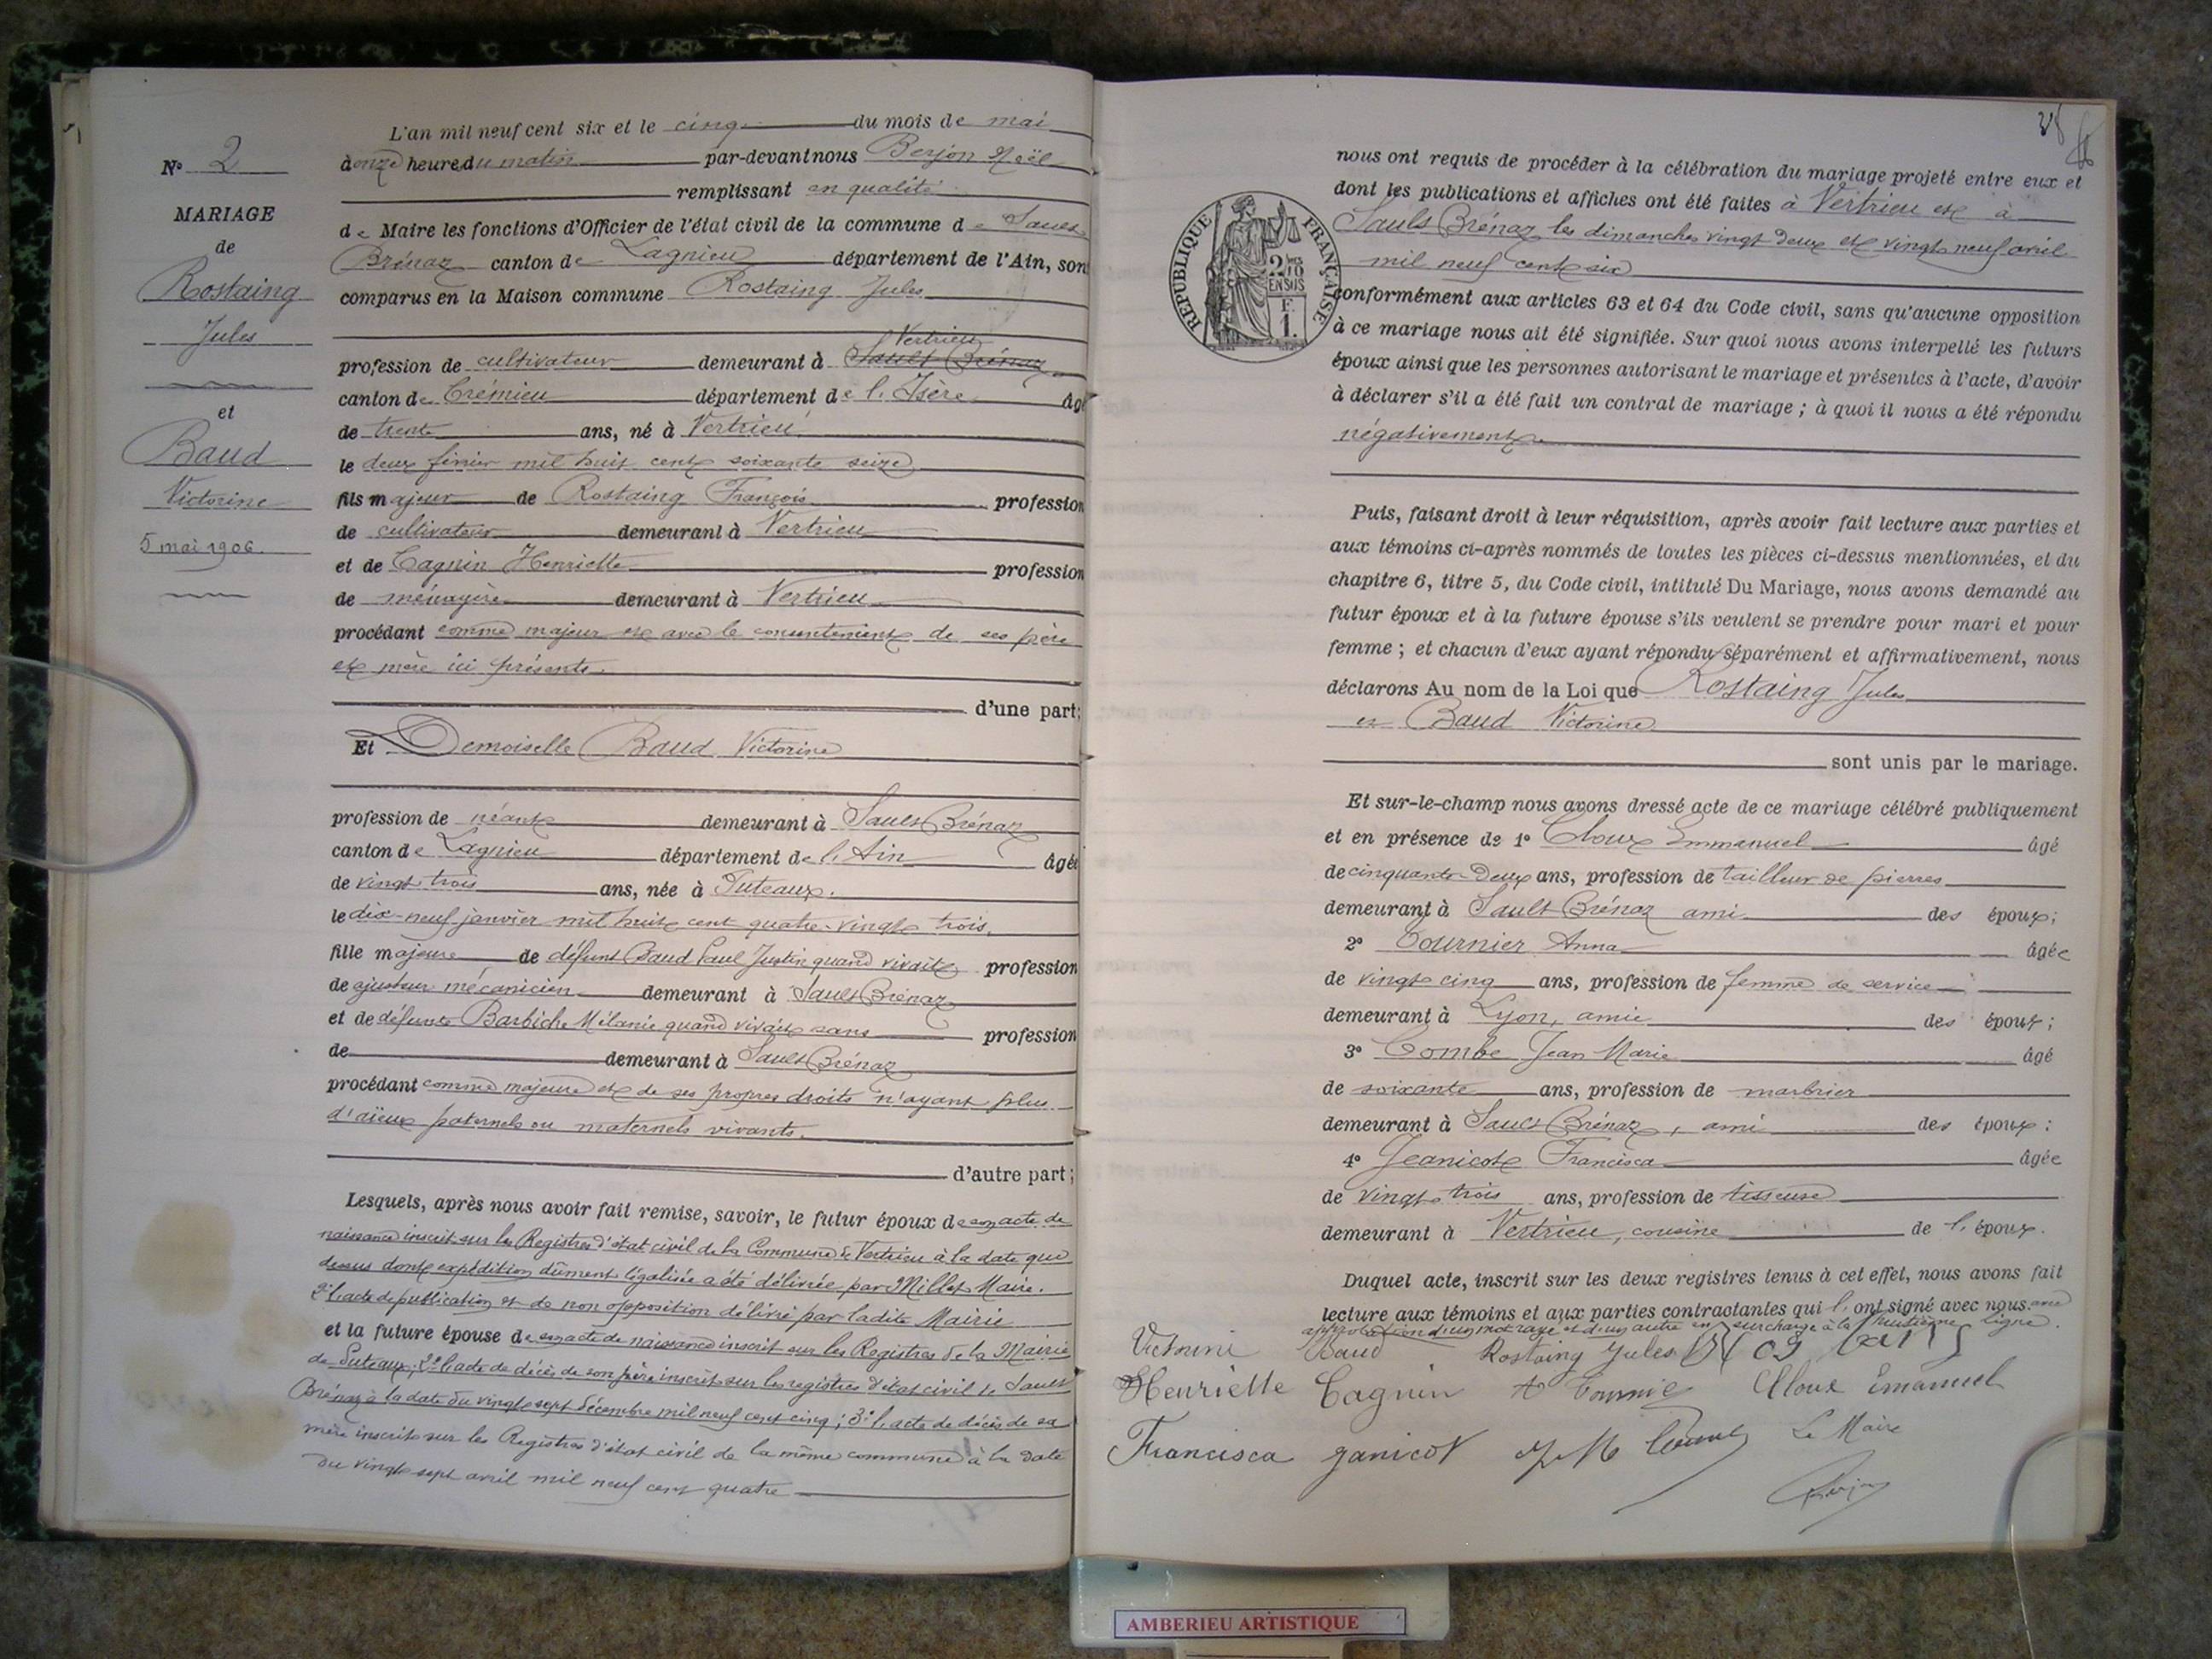 N° 2
MARIAGE
de
Rostaing
Jules
et
Baud
Victorine
5 mai 1906.
L'an mil neuf cent six et le cinq du mois de mai
à onze heures du matin par-devant nous Berjon Noël
remplissant en qualité
de Maire les fonctions d'Officier de l'état civil de la commune de Sault
Brénaz canton de Lagnieu département de l'Ain, sont
comparus en la Maison commune Rostaing Jules
Vertrieu
profession de cultivateur demeurant à Sault Brénaz
canton de Crémieu département de l'Isère âgé
de trente ans, né à Vertrieu
le deux février mil huit cent soixante seize
fils majeur de Rostaing François profession
de cultivateur demeurant à Vertrieu
et de Cagnin Henriette profession
de ménagère demeurant à Vertrieu
procédant comme majeur et avec le consentement de ses père
et mère ici présents.
d'une part;
Et Demoiselle Baud Victorine
profession de néant demeurant à Sault Brénaz
canton de Lagnieu département de l'Ain âgée
de vingt trois ans, née à Puteaux.
le dix-neuf janvier mil huit cent quatre-vingt trois.
fille majeure de défunt Baud Paul Justin quand vivait profession
de ajusteur mécanicien demeurant à Sault Brénaz
et de défunte Barbiche Mélanie quand vivait sans profession
de demeurant à Sault Brénaz
procédant comme majeure et de ses propres droits n'ayant plus
d'aïeux paternels ou maternels vivants.
d'autre part;
Lesquels, après nous avoir fait remise, savoir, le futur époux de son acte de
naissance inscrit sur les Registres d'état civil de la Commune de Vertrieu à la date que
dessus dont expédition dûment légalisée a été délivrée par Millet Maire.
2° l'acte de publication et de non opposition délivré par ladite Mairie
et la future épouse de son acte de naissance inscrit sur les Registres de la Mairie
de Puteaux; 2° l'acte de décès de son père inscrit sur les registres d'état civil de Sault
Brénaz à la date du vingt sept décembre mil neuf cent cinq; 3° l'acte de décès de sa
mère inscrit sur les Registres d'état civil de la même commune à la date
du vingt sept avril mil neuf cent quatre
nous ont requis de procéder à la célébration du mariage projeté entre eux et
dont les publications et affiches ont été faites à Vertrieu et à
Sault Brénaz les dimanches vingt deux et vingt neuf avril
mil neuf cent six
RÉPUBLIQUE FRANÇAISE
2/10 EN SUS
F.
1.
conformément aux articles 63 et 64 du Code civil, sans qu'aucune opposition
à ce mariage nous ait été signifiée. Sur quoi nous avons interpellé les futurs
époux ainsi que les personnes autorisant le mariage et présentes à l'acte, d'avoir
à déclarer s'il a été fait un contrat de mariage; à quoi il nous a été répondu
négativement.
Puis, faisant droit à leur réquisition, après avoir fait lecture aux parties et
aux témoins ci-après nommés de toutes les pièces ci-dessus mentionnées, et du
chapitre 6, titre 5, du Code civil, intitulé Du Mariage, nous avons demandé au
futur époux et à la future épouse s'ils veulent se prendre pour mari et pour
femme; et chacun d'eux ayant répondu séparément et affirmativement, nous
déclarons Au nom de la Loi que Rostaing Jules
et Baud Victorine
sont unis par le mariage.
Et sur-le-champ nous avons dressé acte de ce mariage célébré publiquement
et en présence de 1° Cloux Emmanuel âgé
de cinquante-deux ans, profession de tailleur de pierres
demeurant à Sault Brénaz ami des époux;
2° Tournier Anna âgée
de vingt cinq ans, profession de femme de service
demeurant à Lyon, amie des époux;
3° Combe Jean Marie âgé
de soixante ans, profession de marbrier
demeurant à Sault Brénaz, ami des époux;
4° Jeanicot Francisca âgée
de vingt trois ans, profession de tisseuse
demeurant à Vertrieu, cousine de l'époux.
Duquel acte, inscrit sur les deux registres tenus à cet effet, nous avons fait
lecture aux témoins et aux parties contractantes qui l'ont signé avec nous. avec
approbation d'un mot rayé et d'un autre en surcharge à la huitième ligne.
Victorine Baud Rostaing Jules
Henriette Cagnin Cloux Emanuel
Francisca ganicot JM Le Maire
Berjon
AMBERIEU ARTISTIQUE